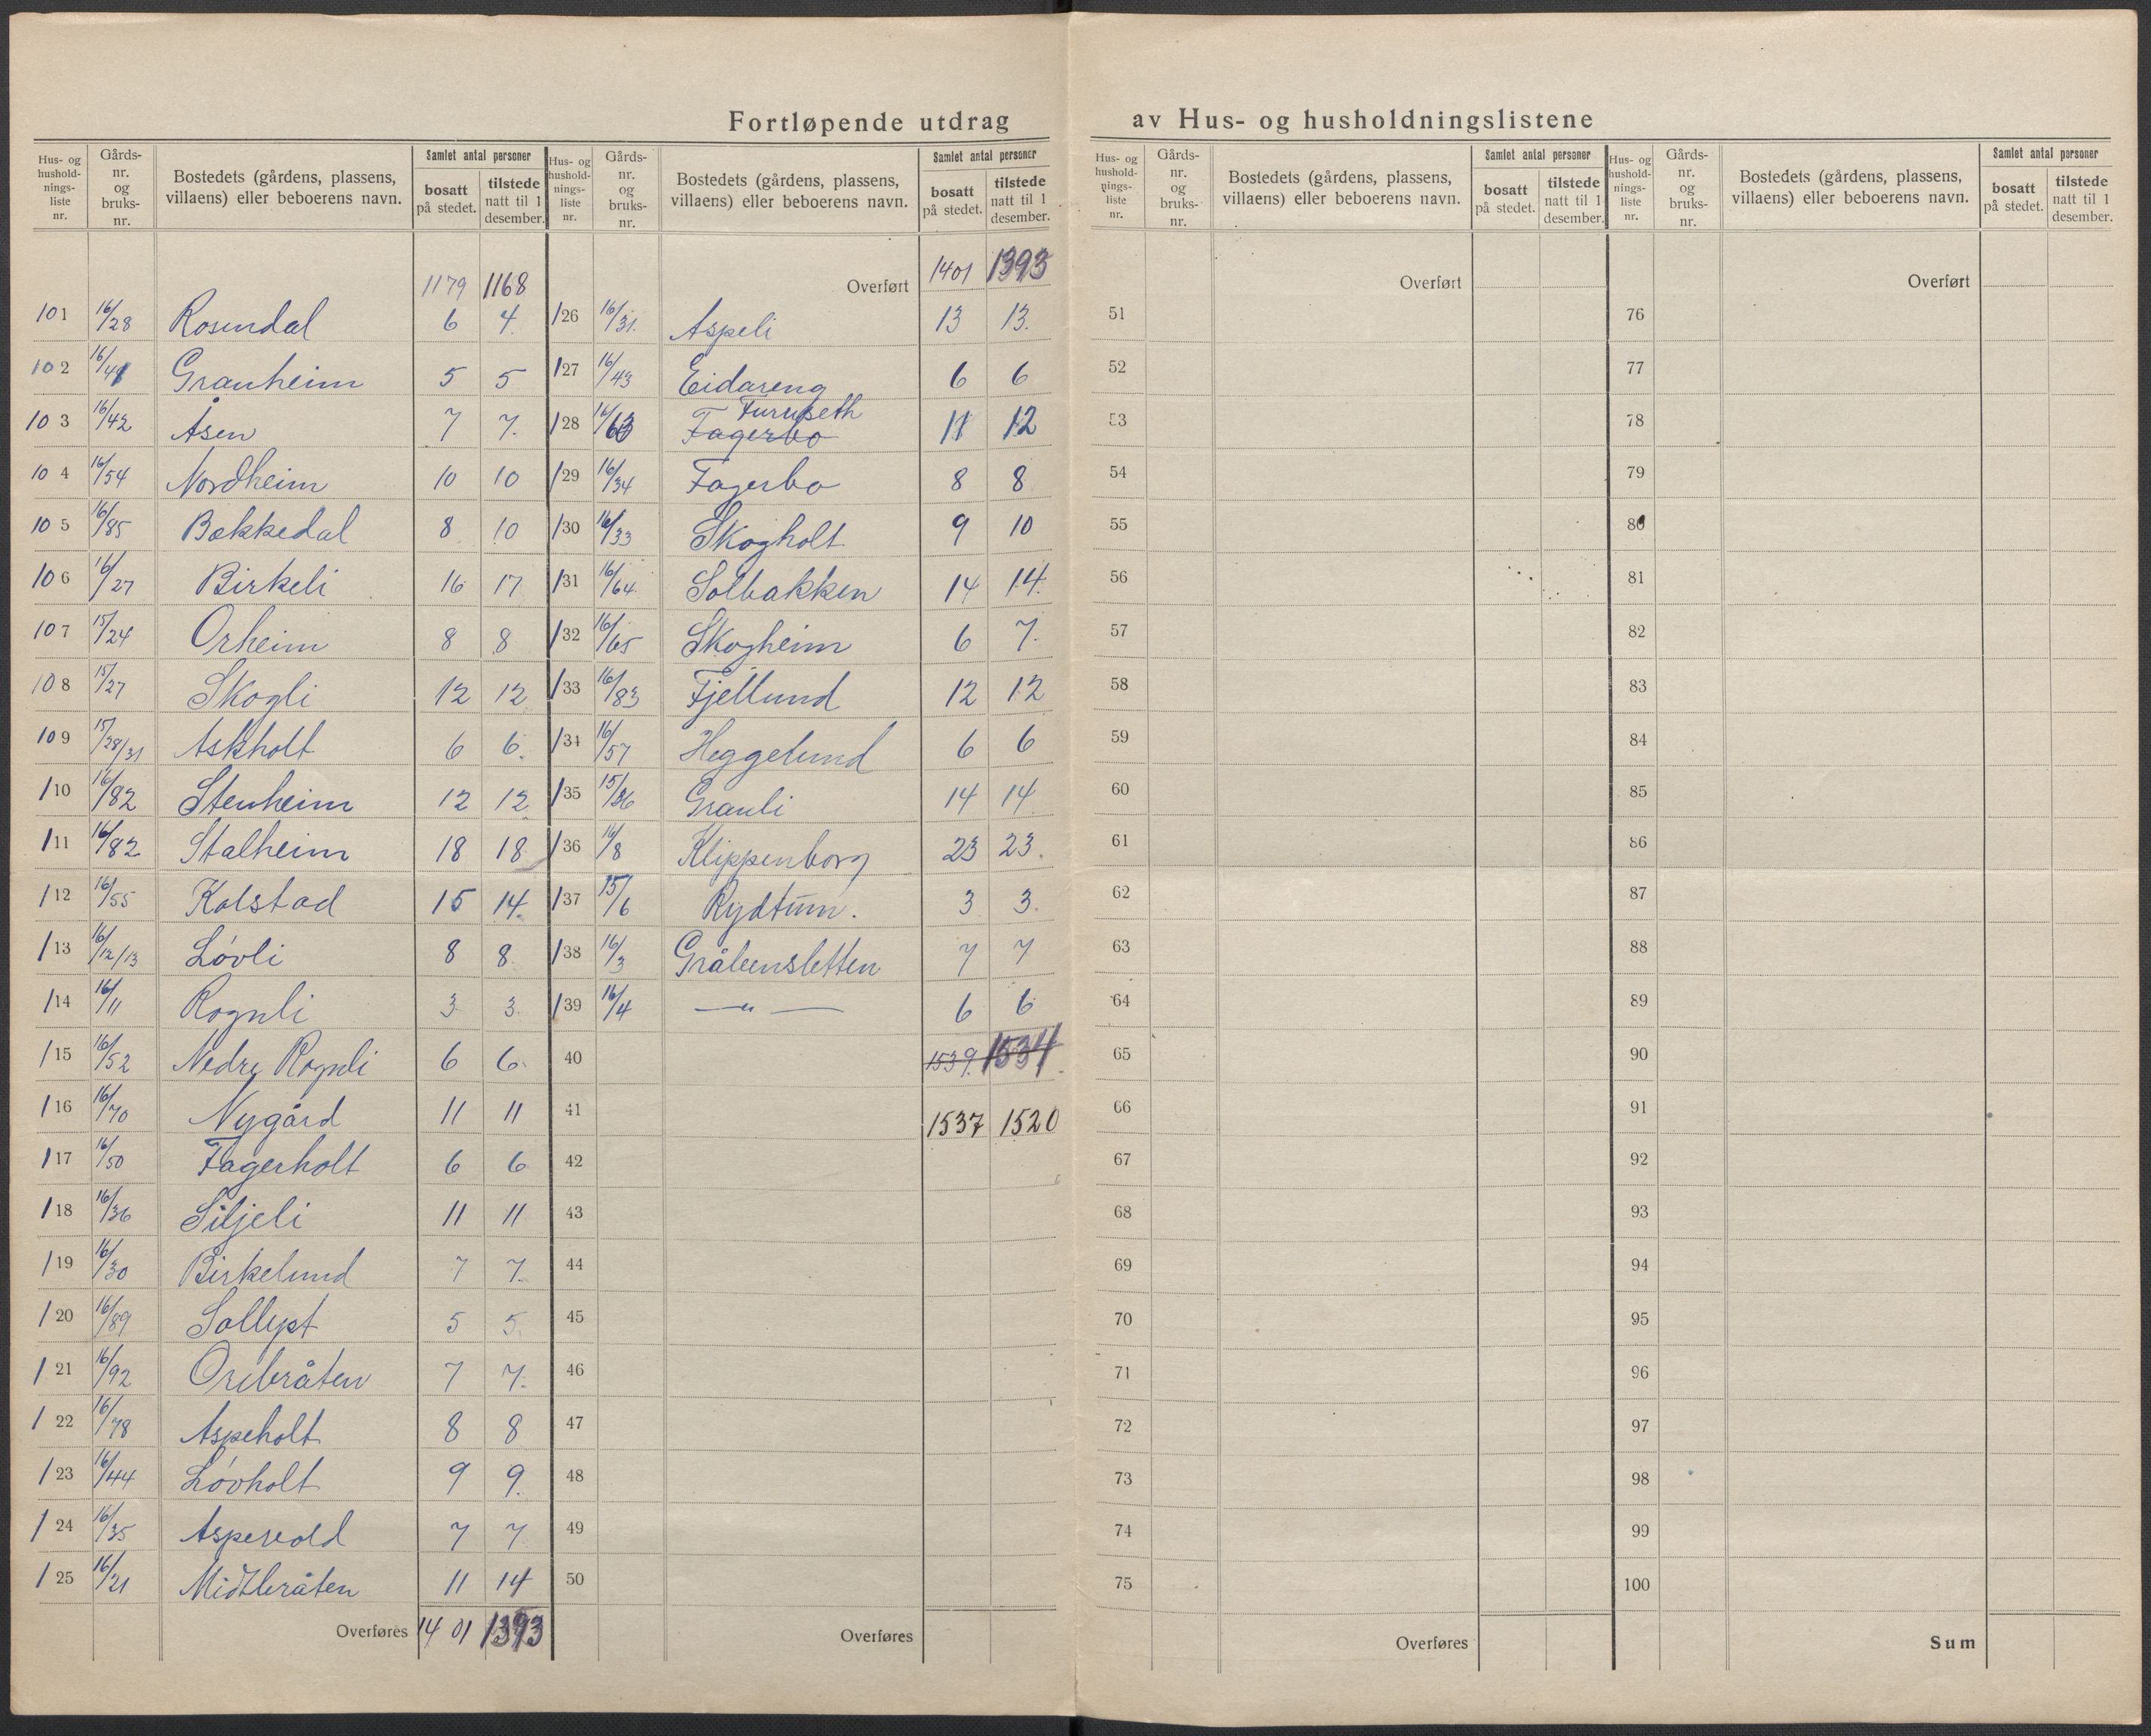 Fortløpende utdrag av Hus- og husholdningslistene
Hus- og husholdnings-liste nr. | Gårds-nr. og bruks-nr. | Bostedets (gårdens, plassens, villaens) eller beboerens navn. | Samlet antal personer | bosatt på stedet. | tilstede natt til 1 desember.
1179 1168
101 16/28 Rosendal 6 4
102 16/41 Granheim 5 5
103 16/42 Åsen 7 7.
104 16/54 Nordheim 10 10
105 16/85 Bekkedal 8 10
106 16/27 Birkeli 16 17
107 15/24 Orheim 8 8
108 15/27 Skogli 12 12
109 15/28/31 Askholt 6 6.
110 16/82 Stenheim 12 12
111 16/82 Stalheim 18 18
112 16/55 Kolstad 15 14.
113 16/12/13 Løvli 8 8
114 16/11 Rognli 3 3
115 16/52 Nedre Rognli 6 6.
116 16/70 Nygård 11 11
117 16/50 Fagerholt 6 6
118 16/36 Siljeli 11 11
119 16/30 Birkelund 7 7.
120 16/89 Sollyst 5 5.
121 16/92 Orebråten 7 7.
122 16/78 Aspeholt 8 8
123 16/44 Løvholt 9 9.
124 16/35 Aspevold 7 7
125 16/21 Midtbråten 11 14
Overføres 1401 1393
Hus- og husholdnings-liste nr. | Gårds-nr. og bruks-nr. | Bostedets (gårdens, plassens, villaens) eller beboerens navn. | Samlet antal personer | bosatt på stedet. | tilstede natt til 1 desember.
Overført 1401 1393
126 16/31. Aspeli 13 13.
127 16/43 Eidareng 6 6
128 16/63 Furuseth Fagerbo 11 12
129 16/34 Fagerbo 8 8
130 16/33 Skogholt 9 10
131 16/64 Solbakken 14 14.
132 16/65 Skogheim 6 7.
133 16/83 Fjellund 12 12
134 16/57 Heggelund 6 6
135 15/36 Granli 14 14
136 16/8 Klippenborg 23 23.
137 15/6 Rydtun. 3 3.
138 16/3 Gråbensletten 7 7
139 16/4 — " — 6 6
40 1539. 1534
41 1537 1520
42
43
44
45
46
47
48
49
50
Overføres
Hus- og husholdnings-liste nr. | Gårds-nr. og bruks-nr. | Bostedets (gårdens, plassens, villaens) eller beboerens navn. | Samlet antal personer | bosatt på stedet. | tilstede natt til 1 desember.
Overført
51
52
53
54
55
56
57
58
59
60
61
62
63
64
65
66
67
68
69
70
71
72
73
74
75
Overføres
Hus- og husholdnings-liste nr. | Gårds-nr. og bruks-nr. | Bostedets (gårdens, plassens, villaens) eller beboerens navn. | Samlet antal personer | bosatt på stedet. | tilstede natt til 1 desember.
Overført
76
77
78
79
80
81
82
83
84
85
86
87
88
89
90
91
92
93
94
95
96
97
98
99
100
Sum